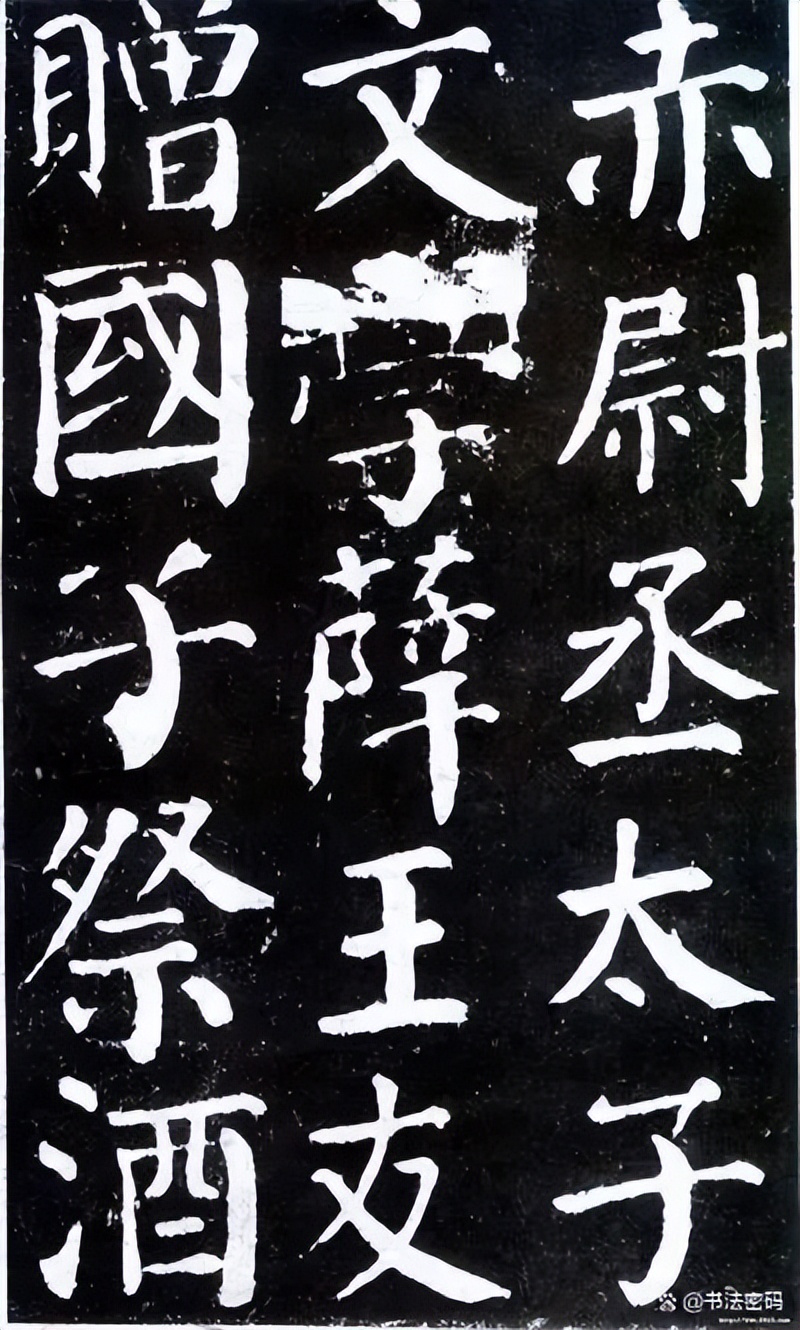 赤尉丞太子
文学薛王友
贈國子祭酒
@书法密码